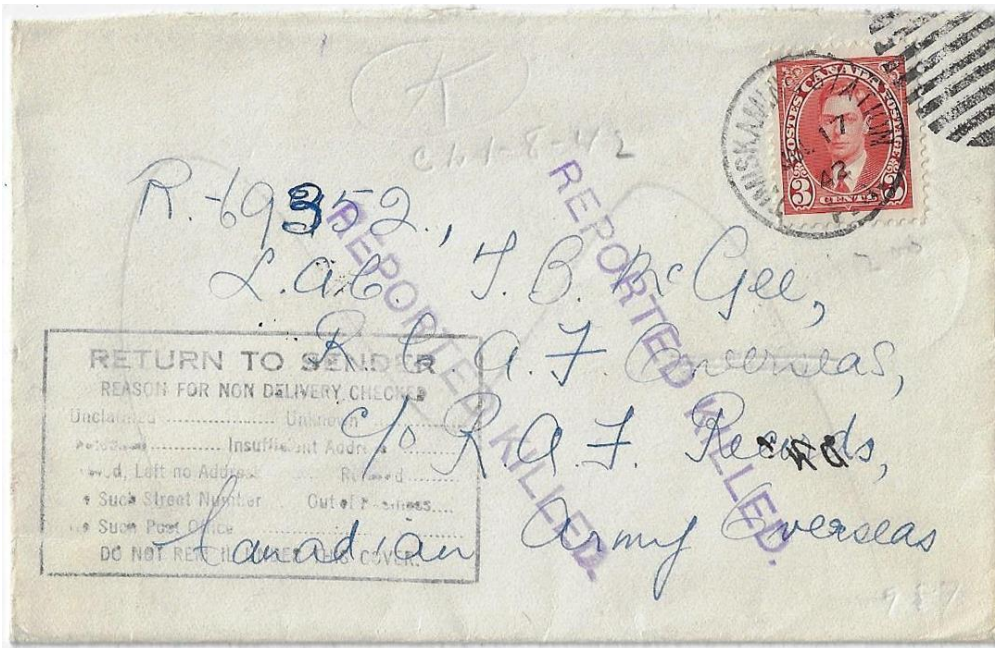 K
POSTES CANADA POSTAGE
3 CENTS
STATION
17
42
1-8-42
R-69352,
L.A.C. J. B. McGee,
R.C.A.F. Overseas,
c/o R.A.F. Records,
Canadian Army Overseas
REPORTED KILLED.
REPORTED KILLED.
RETURN TO SENDER
REASON FOR NON DELIVERY CHECKED
Unclaimed .......... Unknown
Insufficient Addre
d, Left no Address Refused
Such Street Number Out of Business
Such Post Office
DO NOT REMAIL UNDER THIS COVER.